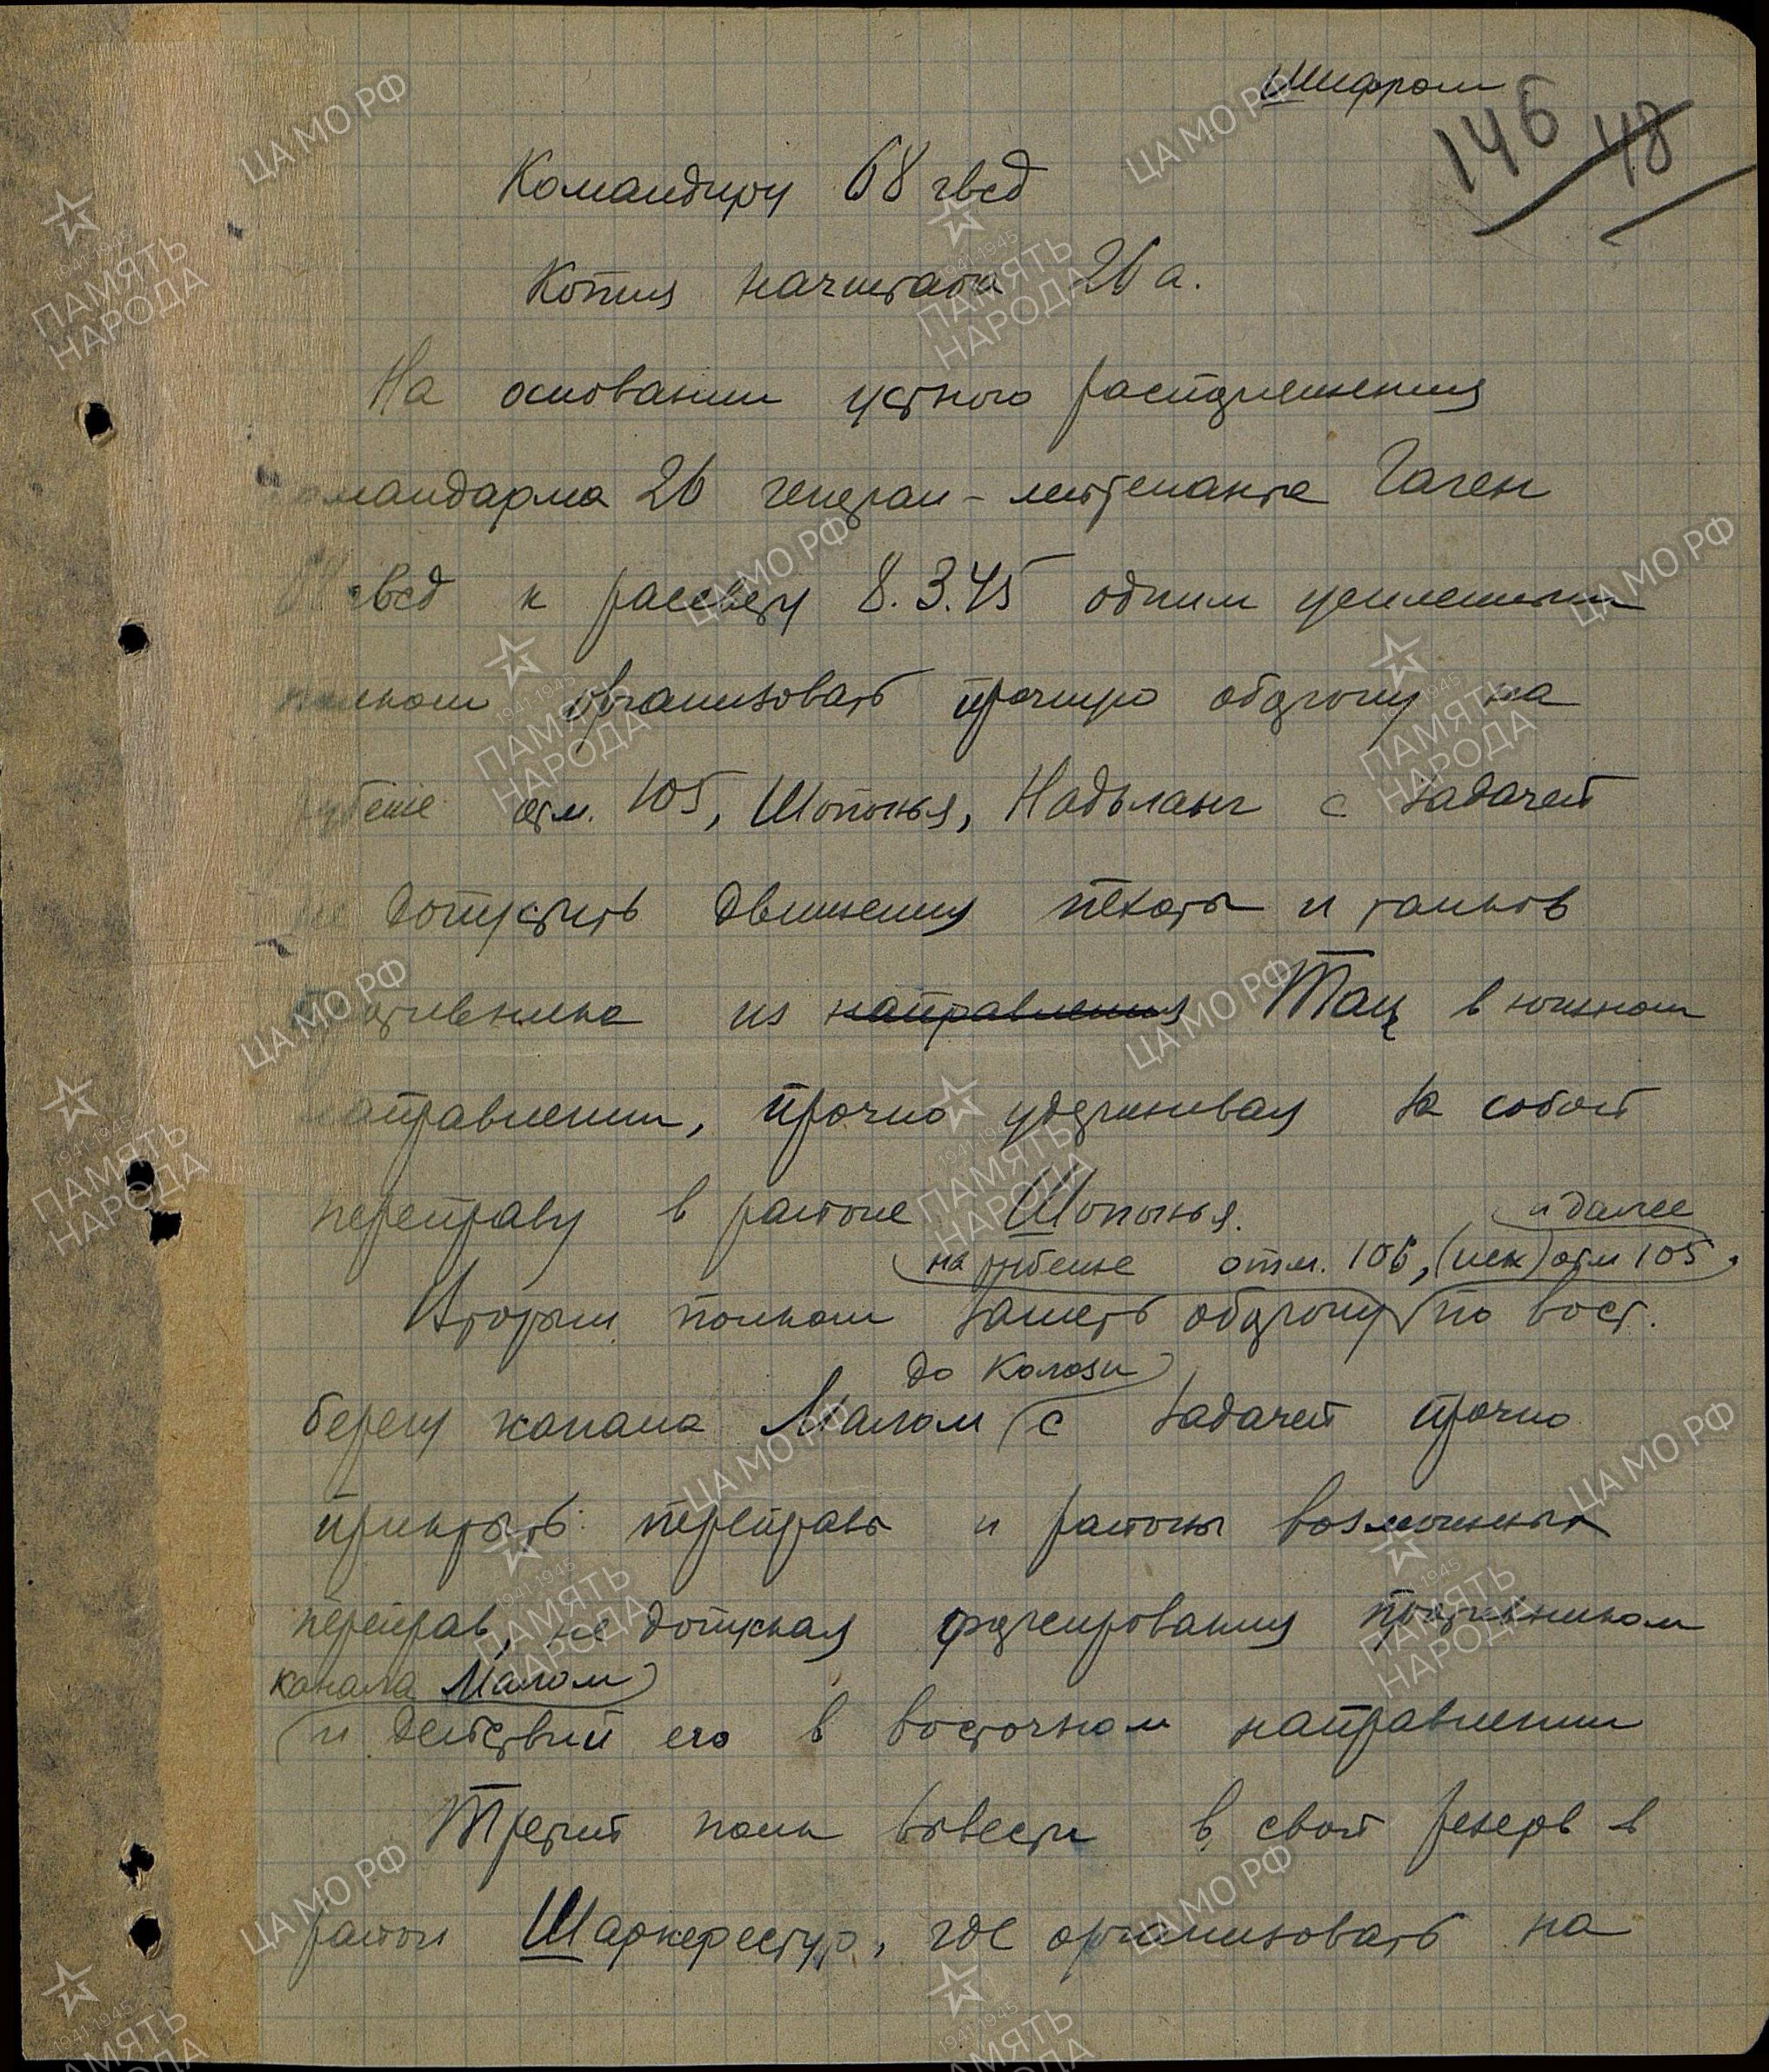 Шифром
146 48
Командиру 68 гвсд
Копия начштаба 26 а.
На основании устного распоряжения
командарма 26 генерал-лейтенанта Гаген
68 гвсд к рассвету 8.3.45 одним усиленным
полком организовать прочную оборону на
рубеже отм. 105, Шопонья, Надьланг с задачей
не допустить движения пехоты и танков
противника из направления Тац в южном
направлении, прочно удерживая за собой
переправу в районе Шопонья.
и далее
на рубеже отм. 106, (иск) отм 105,
Вторым полком занять оборону по вост.
до Калози
берегу канала Малом с задачей прочно
прикрыть переправы и районы возможных
переправ, не допуская форсирования противником
канала Малом
и действий его в восточном направлении
Третий полк вывести в свой резерв в
район Шаркерестур, где организовать на
ЦА МО РФ
1941-1945
ПАМЯТЬ
НАРОДА